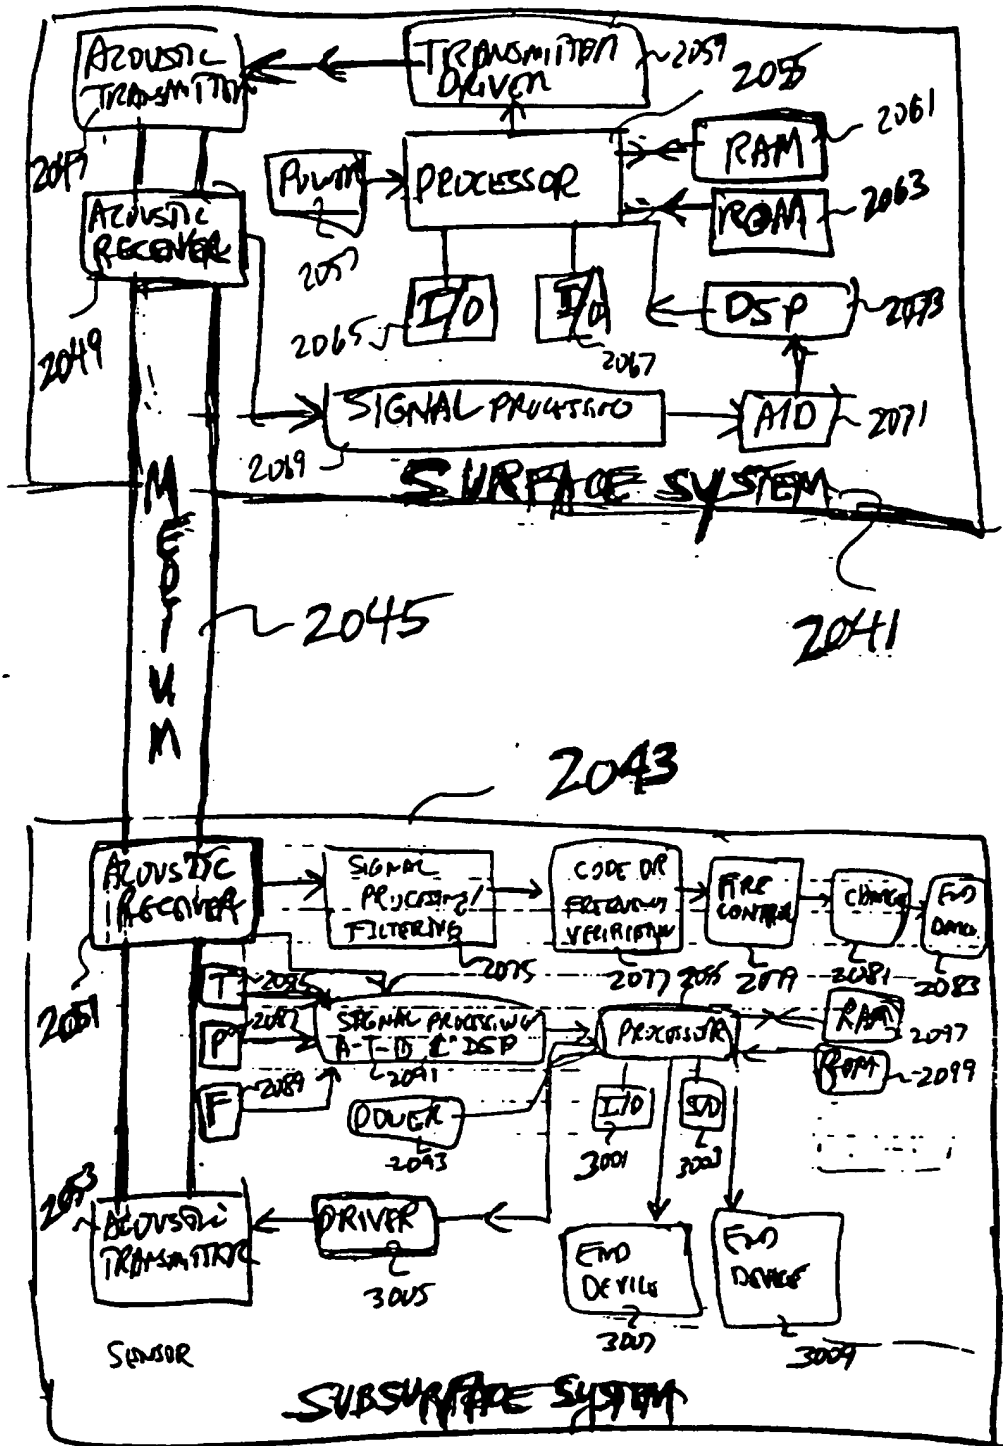 ACOUSTIC
TRANSMITTER
TRANSMITTER
DRIVER
2059
2055
2061
RAM
2047
POWER
PROCESSOR
2063
ROM
ACOUSTIC
RECEIVER
2057
I/O
I/O
DSP
2073
2049
2065
2067
SIGNAL PROCESSING
A/D
2071
2069
SURFACE SYSTEM
MEDIUM
2045
2041
2043
ACOUSTIC
RECEIVER
SIGNAL
PROCESSING/
FILTERING
CODE OR
FREQUENCY
VERIFICATION
FIRE
CONTROL
CHARGE
END
2075
2077
2079
2081
2083
2051
T
2085
P
2087
F
2089
SIGNAL PROCESSING
2091
PROCESSOR
RAM
2097
ROM
2099
POWER
2093
I/O
I/O
3001
3003
2053
ACOUSTIC
TRANSMITTER
DRIVER
3005
END
DEVICE
3007
END
DEVICE
3009
SENSOR
SUBSURFACE SYSTEM